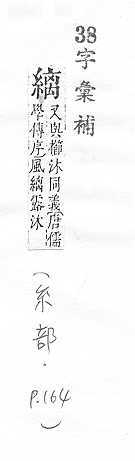 38 字彙補
縭
又與櫛沐同義唐儒
學傳序風縭露沐
(糸部.
P.164)